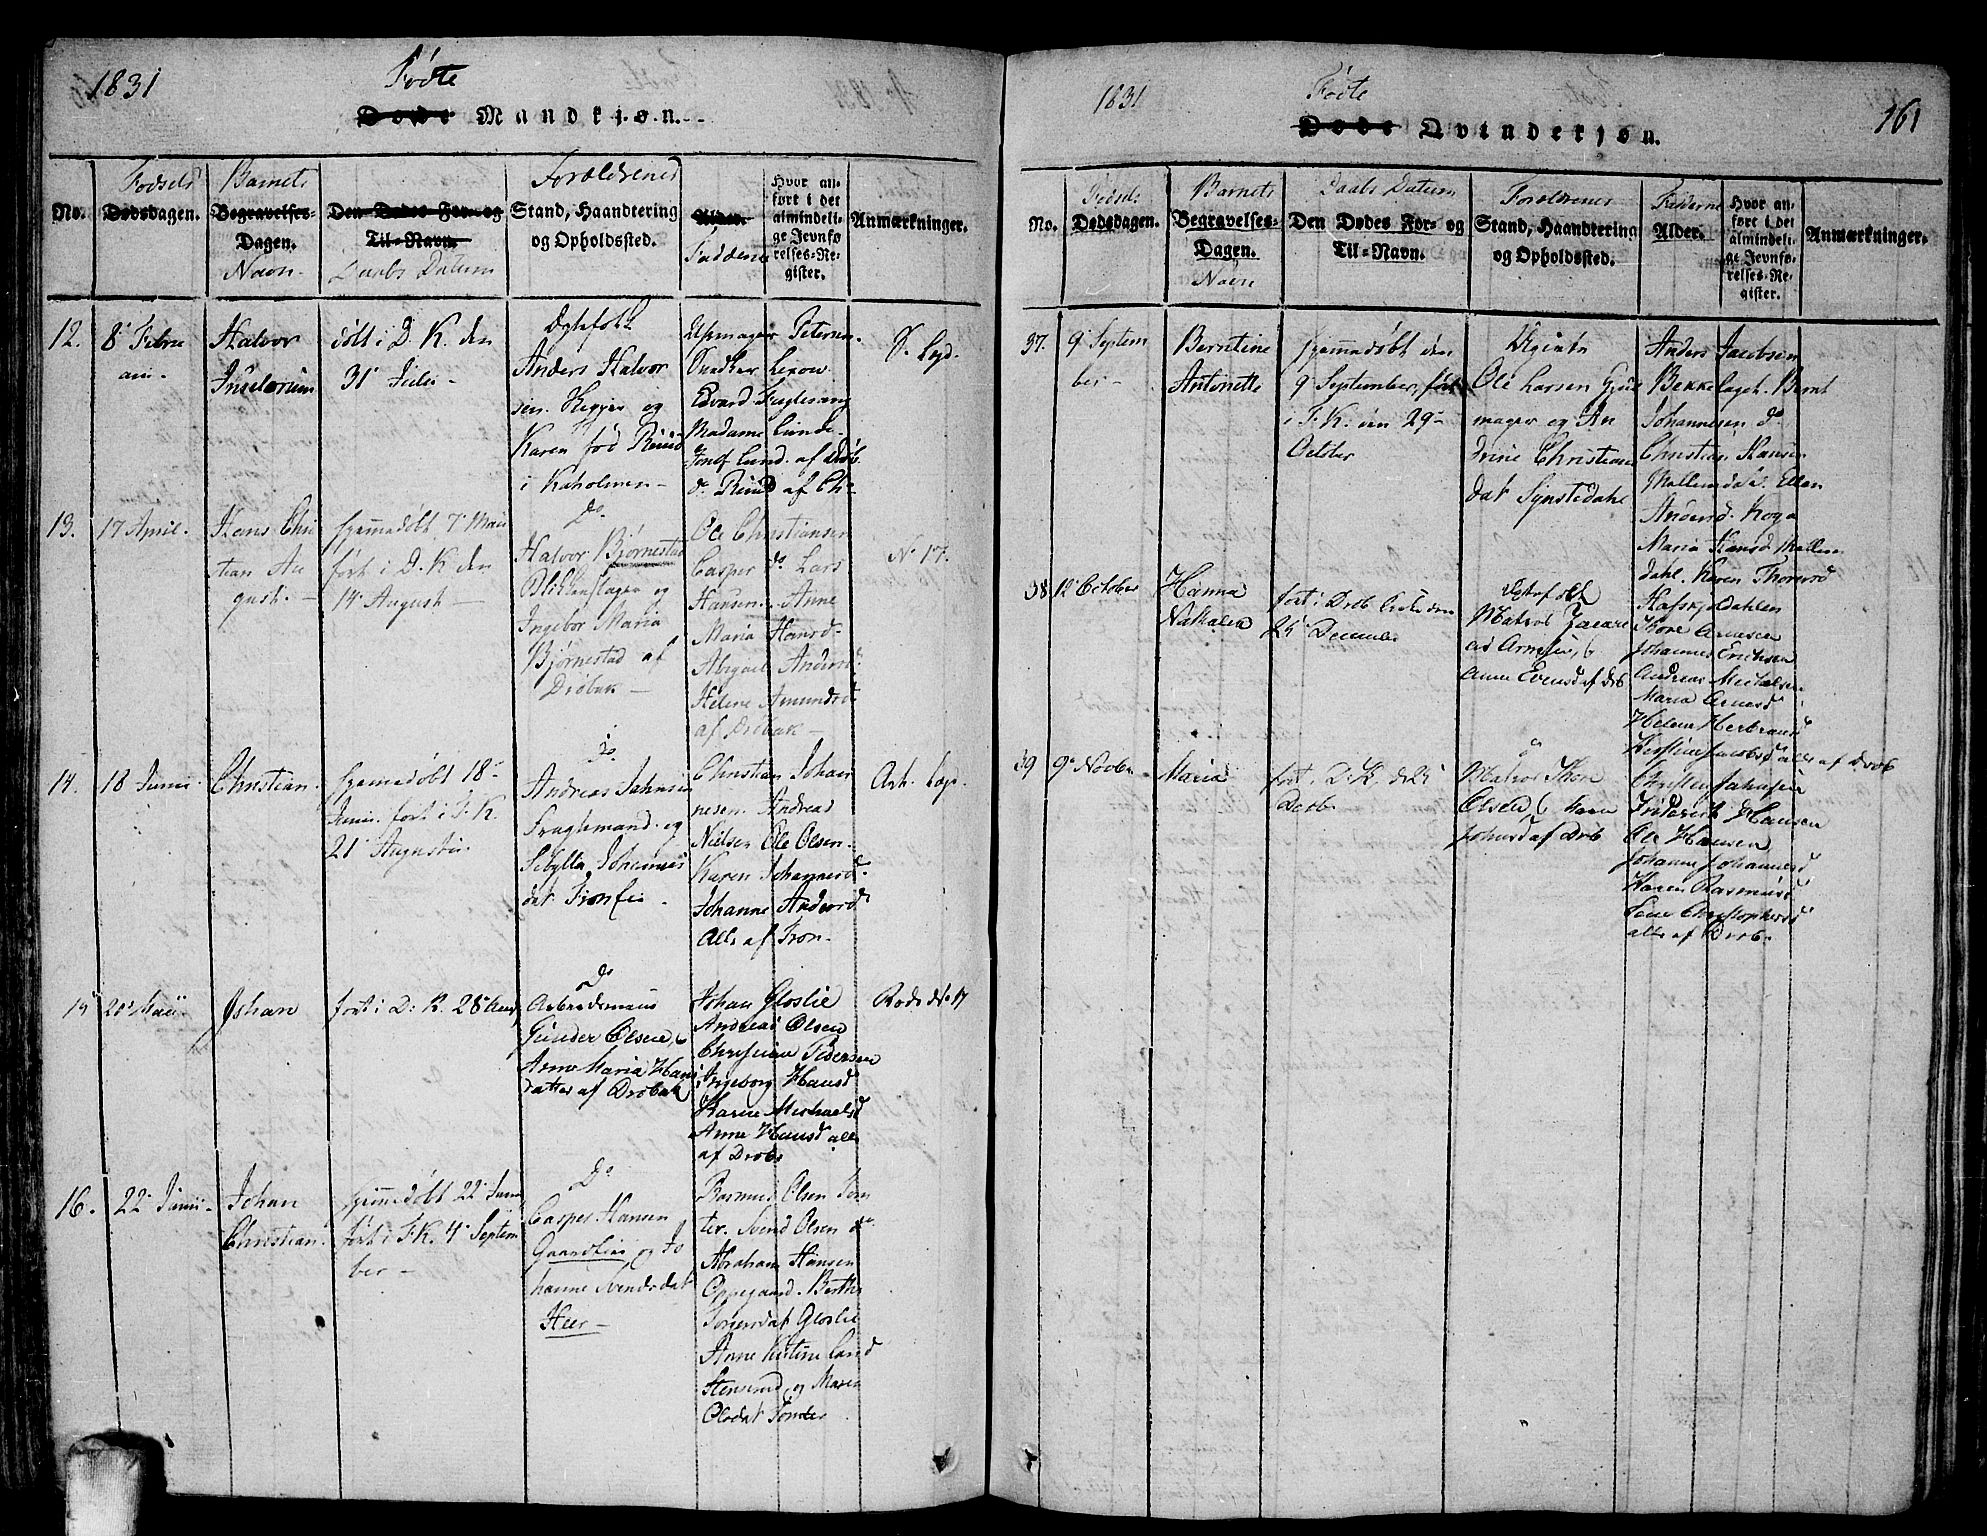 1831
Födte
Døde Mandkjøn.
No.
Fødsels
Dødsdagen.
Barnets
Begravelses-
Dagen.
Navn
Den Dødes For- og
Til-Navn.
Daabs Datum
Forældrenes
Stand, Haandtering
og Opholdssted.
Alder.
Faddere
Hvor an-
ført i det
almindeli-
ge Jevnfø-
relses-Re-
gister.
Anmærkninger.
12.
8de Febru
arii
Halvor
døbt i D. K. den
31 Julii
Ægtefolk
Anders Halvor
sen. Hegger og
Karen fød Ruud
i Kaholmen
Petersen
Edvard Fuglesang
Madame Lunde
af Ch
13.
17 April
Hans Chri
stian Au
gust.
hjemmedøbt 7 Maii
ført i D. K den
14 August
Do
Halvor Bjørnestad
Blikkenslager og
Ingebor Maria
Bjørnestad af
Drøbak
Ole Christiansen
Casper do Lars
Hansen. Anne
Maria Hansd.
Abigael Andersd.
Helene Amundsd
af Drøbak
No 17.
14.
18 Junii
Christian.
hjemmedøbt 18
Junii. ført i F. K.
21 Augustii
Do
Andreas Johnsen
og
Sibylla Johannes
dat
Christian Johan
nesen. Andreas
Nielsen Ole Olsen.
Karen Johannesd.
Johanne Andersd
Alle af Fron.
15
20 Maii
Johan
ført i D. K. 28 Aug
Do
Arbeidsmand
Gunder Olsen,
Anne Maria Hans
datter af Drøbak
Johan Gloslie
Andreas Olsen
Christian Pedersen
Ingeborg Hansd
Karen Michaelsd
Anne Hansd alle
af Drøb.
Rode No 17
16.
22 Junii
Johan
Christian.
hjemmedøbt 22 Junii
ført i F. K. 4 Septem
ber
Do
Casper Hansen
og Jo
hanne Svendsdat
Heer
Rasmus Olsen Tom
ter. Svend Olsen do
Abraham Hansen
Oppegaard. Berthe
Gloslie
Anne
Stensrud og Maren
Olsdat Tomter
1831
Födte
Døde Qvindekjøn.
161
No.
Fødsels
Dødsdagen.
Barnets
Begravelses-
Dagen.
Navn
Daabs Datum
Den Dødes For- og
Til-Navn.
Forældrenes
Stand, Haandtering
og Opholdssted.
Fadderne
Alder.
Hvor an-
ført i det
almindeli-
ge Jevnfø-
relses-Re-
gister.
Anmærkninger.
37.
9 Septem
ber
Berntine
Antonette
hjemmedøbt den
9 September, ført
i F. K. den 29
October
Uægte
Ole Larsen Gjus
mager og An
drine Christians
dat Synstedahl
Anders Jacobsen
Bekkelaget. Bernt
Johannesen do
Christian Hansen
Mallemdal. Ellen
Andersd. Koga
Maria Hansd. Mallem
dahl. Karen Thorersd
38
12 October
Hanna
Nathalia
ført i Drøb Kirke den
25 December
Ægtefolk
Matros Zacari
as Arnesen,
Anne Evensd af Drøb
Hafskjoldahlen
Thore Arnesen
Johannes Erichsen
Andreas Michelsen
Maria Arnesd
Helene Herbrandsd
Kirstine Jacobsd alle af Drøb
39
9 Novbr
Maria
ført i D. K. d 25
Decb
do
Matros Thore
Olsen, Karen
Johnsd af Drøb
Christen Johnsen
Friderich Hansen
Ole Hansen
Johanne Johannesd
Karen Rasmusd
Lene Christophersd
alle af Drøb.